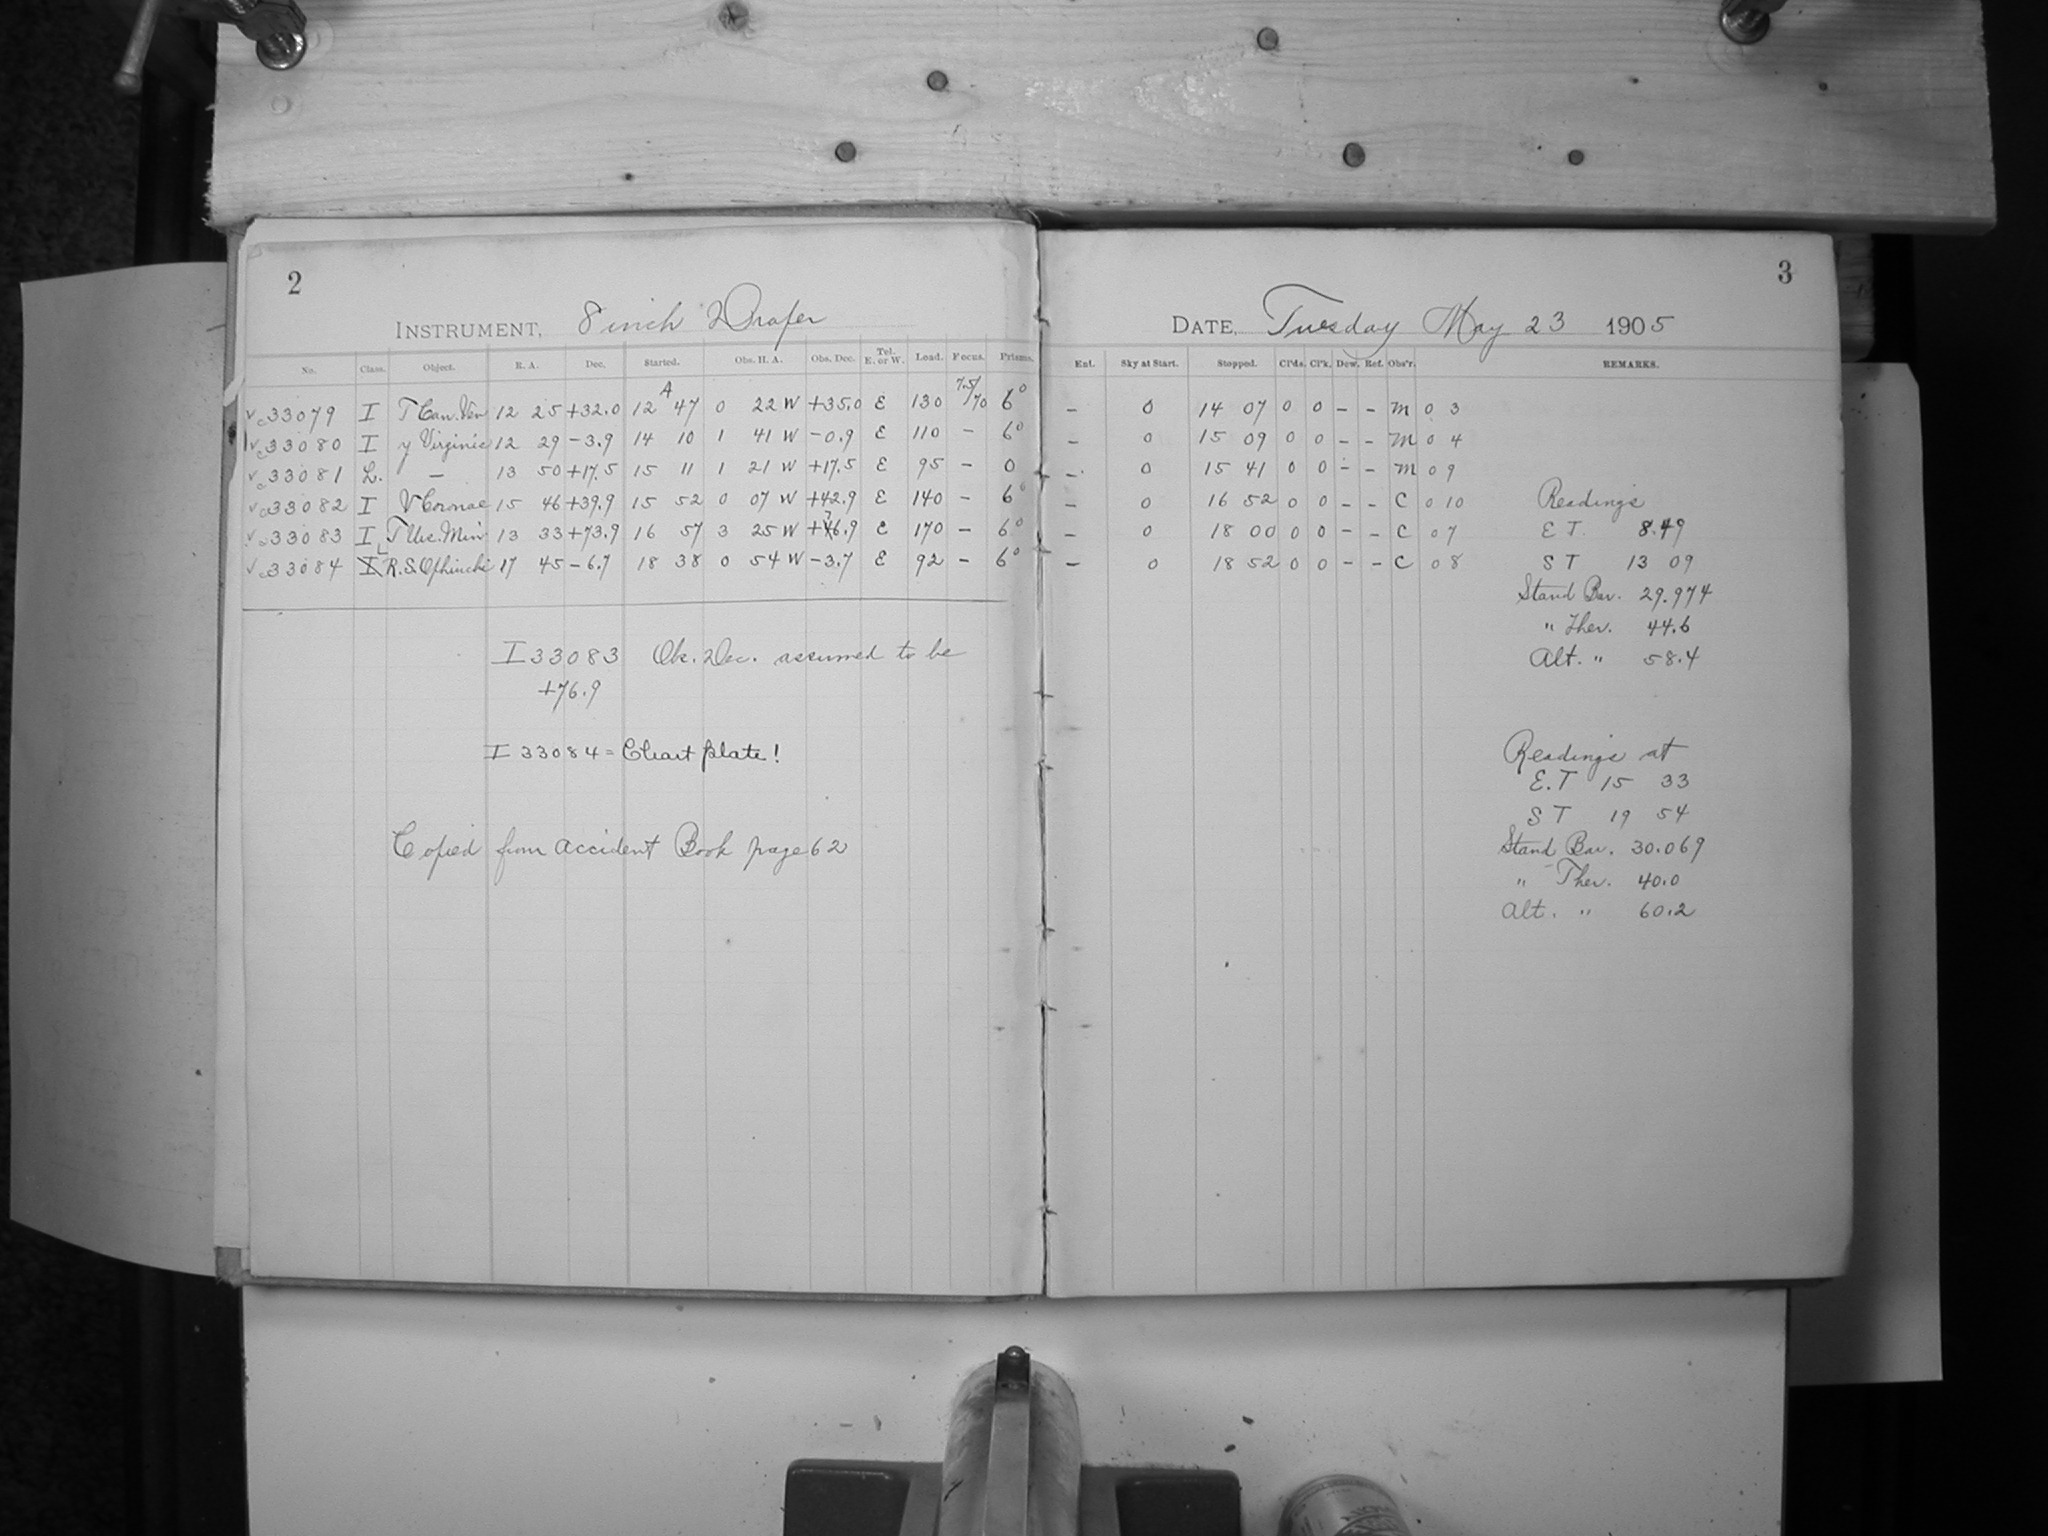 2
INSTRUMENT, 8 inch Draper
No. Class. Object. R. A. Dec. Started. Obs. H. A. Obs. Dec. Tel. E. or W. Load. Focus. Prisms.
c33079 I T Can. Ven 12 25 +32.0 12 A 47 0 22 W +35.0 E 130 7.5/70 6°
c33080 I γ Virginis 12 29 -3.9 14 10 1 41 W -0.9 E 110 - 6°
c33081 L. - 13 50 +17.5 15 11 1 21 W +17.5 E 95 - 0
c33082 I V Coronae 15 46 +39.9 15 52 0 07 W +42.9 E 140 - 6°
c33083 I T Urs. Min 13 33 +73.9 16 57 3 25 W +76.9 E 170 - 6°
c33084 L R.S. Ophiuchi 17 45 -6.7 18 38 0 54 W -3.7 E 92 - 6°
I 33083 Obs. Dec. assumed to be
+76.9
I 33084 = Chart plate!
Copied from accident Book page 62
3
DATE, Tuesday May 23 1905
Ent. Sky at Start. Stopped. Cl'ds. Cl'k. Dew. Ret. Obs'r. REMARKS.
- 0 14 07 0 0 - - M 0 3
- 0 15 09 0 0 - - M 0 4
- 0 15 41 0 0 - - M 0 9
- 0 16 52 0 0 - - C 0 10
- 0 18 00 0 0 - - C 0 7
- 0 18 52 0 0 - - C 0 8
Readings
E T. 8.49
S T 13 09
Stand Bar. 29.974
" Ther. 44.6
Alt. " 58.4
Readings at
E.T 15 33
S T 19 54
Stand Bar. 30.069
" Ther. 40.0
Alt. " 60.2